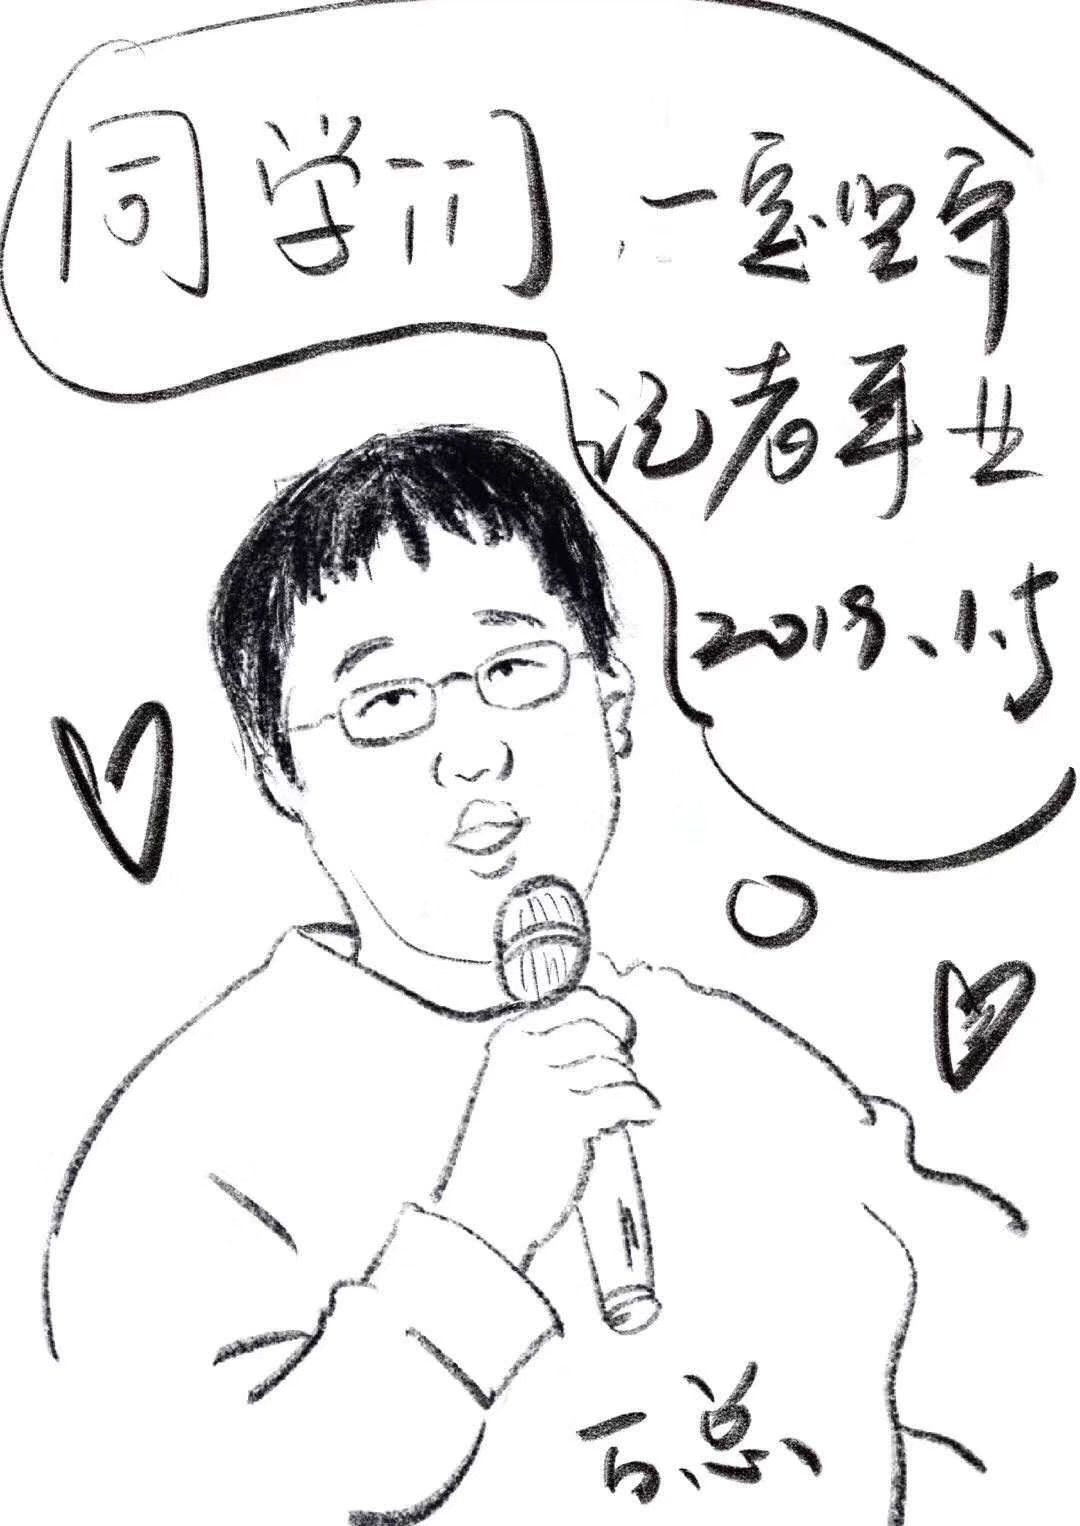 同学们
一定坚守
记者事业
2019、1.5
百总